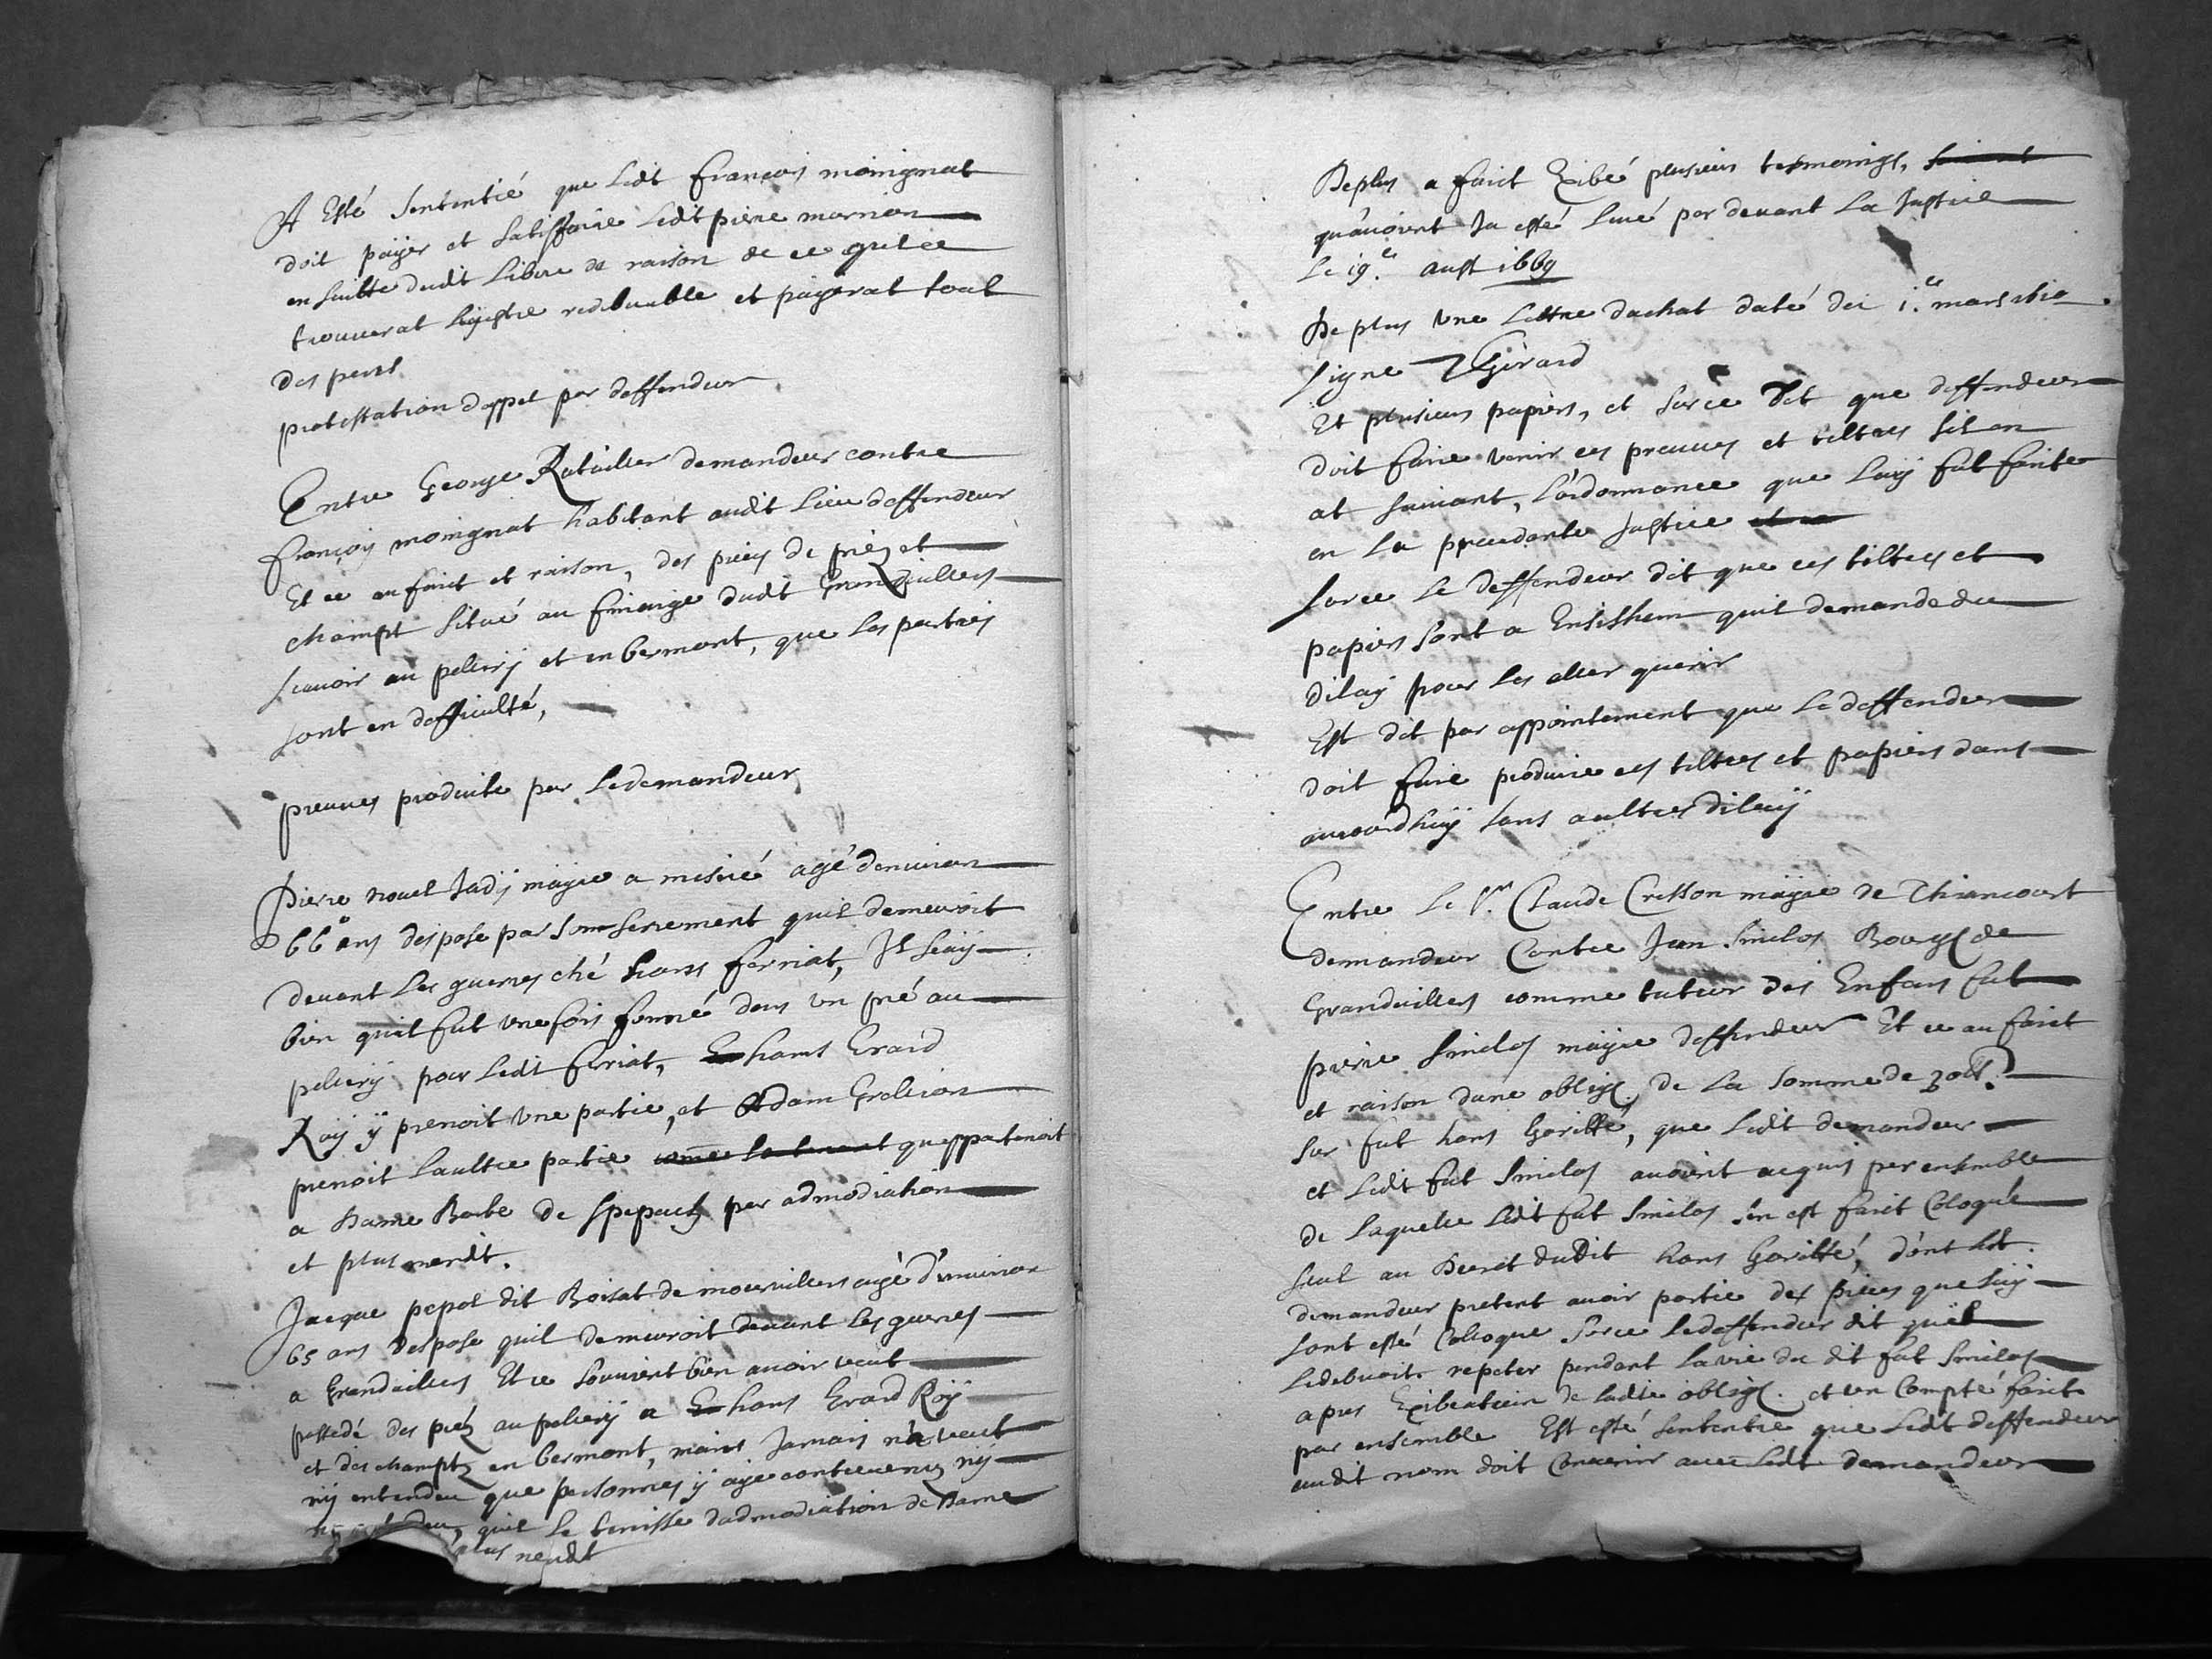 A Esté Sententié que Ledt françois moingnat
doit payer et Satisfaire Ledit piere marion
en suitte dudt Libvre de raison de ce quil ce
trouverat legistre redebuable et payerat tout
des pens
protestation dappel par deffendeur
Entre George Ratailler demandeur contre
françoy moingnat habitant audit Lieu deffendeur
Et ce au faict et raison, des pieces de prez et
champt Situé au finaige dudt Grandvillers
scauoir au peleríj et en bermont, que les parties
sont en difficulté,
preuues produite par Ledemandeur
Pierre nouel Jadÿ maÿre a mesiré agé denuiron
66 ans despose par Son serrement quil demeuroit
deuant Les guerres ché hans ferriat, Jl scaÿ
bien quil fut une fois fenné dans vn pré au
pelierÿ pour Ledt ferriat, hans Erard
Roÿ ÿ prenoit vne partie, et Adam Grellion
prenoit Laultre partie quappartenoit
a Dame Barbe de Spepach par admodiation
et plus nendt.
Jacque pepot dit Boisat de mouruillers agé d'enuiron
65 ans despose quil demeuroit deuant Les guerres
a Grandvillers Et ce souuient bien auoir veut
possedé des prez au pelierÿ a hans Erard Roÿ
et des champtz en bermont, mains Jamais na veut
nÿ entendu que personnes ÿ aye contreuenuz nÿ
quil Le tenisse dadmodiation de Dame
plus nendt
Deplus a faict Exibé plusieurs tesmoings,
qu'auoient Ja esté Liué par deuant La Justice
Le 19.e aust 1669
De plus vne Lettre dachat daté dei 1.e mars
signe Girard
Et plusieurs papiers, et Surce Dit que deffendeur
doit faire venir ces preuues et tiltres sil en
at suiuant, L'ordonnance que Luÿ fut faicte
en La precedante Justice
Surce Le deffendeur dit que ces tiltres et
papiers sont a Ensisheim quil demande du
dilaÿ pour Les aller querir
Est dit par appointement que Le deffendeur
doit faire produire ces tiltres et papiers dans
auiourdhuÿ sans aultres dilaÿ
Entre Le Sr. Claude Cresson maÿre de Thiancourt
demandeur Contre Jean Smilos Bourgs de
Grandvillers comme tuteur des Enfans fut
pierre Smilos maÿre deffendeur Et ce au faict
et raison dune oblig. de La somme de
Sur fut hans Goritté, que Ledit demandeur
et Ledt fut Smilos auoient acquis par ensemble
de Laquelle Ledt fut Smilos s'en est faict Coloqué
seul au Decret dudit hans Goritté, dont Ledt.
demandeur pretent auoir partie des pieces que Luÿ
sont esté Colloque Surce Ledeffendeur dit quil
Ledebuoit repeter pendant La vie du dit fut Smilos
apres Exibeation de Ladte oblig. et vn Compte faict
par ensemble Est esté Sententie que Ledt deffendeur
audit nom doit Conuenir auec Ledt demandeur